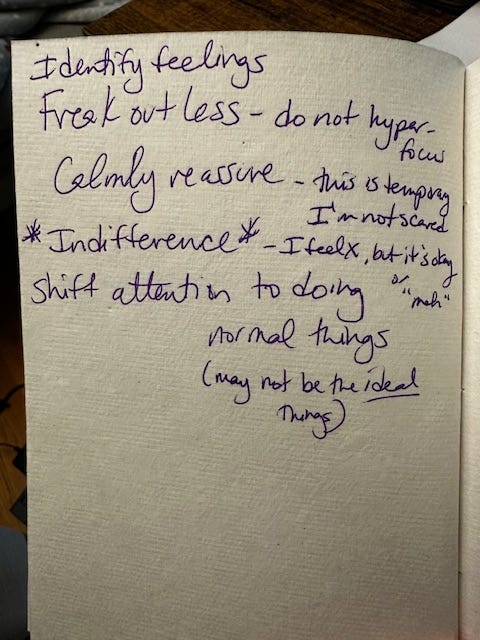 Identify feelings
Freak out less - do not hyper-
focus
Calmly reassure - this is temporary
I'm not scared
*Indifference* - I feel X, but it's okay
or "meh"
Shift attention to doing
normal things
(may not be the ideal
things)